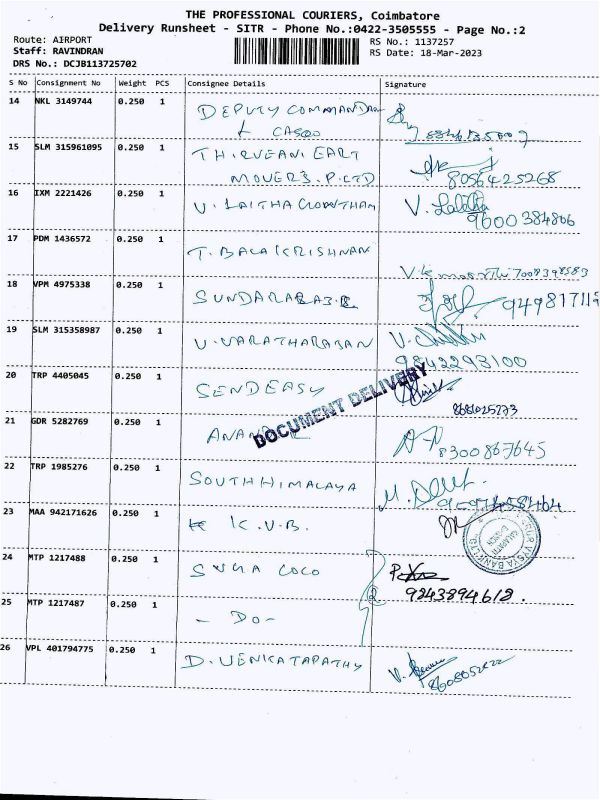 THE PROFESSIONAL COURIERS, Coimbatore
Delivery Runsheet - SITR - Phone No.:0422-3505555 - Page No.:2
Route: AIRPORT
RS No.: 1137257
Staff: RAVINDRAN
RS Date: 18-Mar-2023
DRS No.: DCJB113725702
S No Consignment No Weight PCS Consignee Details Signature
14 NKL 3149744 0.250 1 DEPUTY COMMANDER
& CASO
15 SLM 315961095 0.250 1 THIRVEANI EART
MOVERS.P.LTD 8056425268
16 IXM 2221426 0.250 1 V. LAITHA GOWTHAM V. Lalitha
9600384806
17 PDM 1436572 0.250 1 T. BALAKRISHNAN
7008398583
18 VPM 4975338 0.250 1 SUNDARARAJ.E
19 SLM 315358987 0.250 1 V. VARATHARAJAN
9842293100
20 TRP 4405045 0.250 1 SENDEASY
DOCUMENT DELIVERY
21 GDR 5282769 0.250 1 ANAND
8300867645
22 TRP 1985276 0.250 1 SOUTH HIMALAYA
23 MAA 942171626 0.250 1 K.V.B.
24 MTP 1217488 0.250 1 SUGA COCO
2 9243894612.
25 MTP 1217487 0.250 1 - DO -
26 VPL 401794775 0.250 1 D. VENKATAPATHY